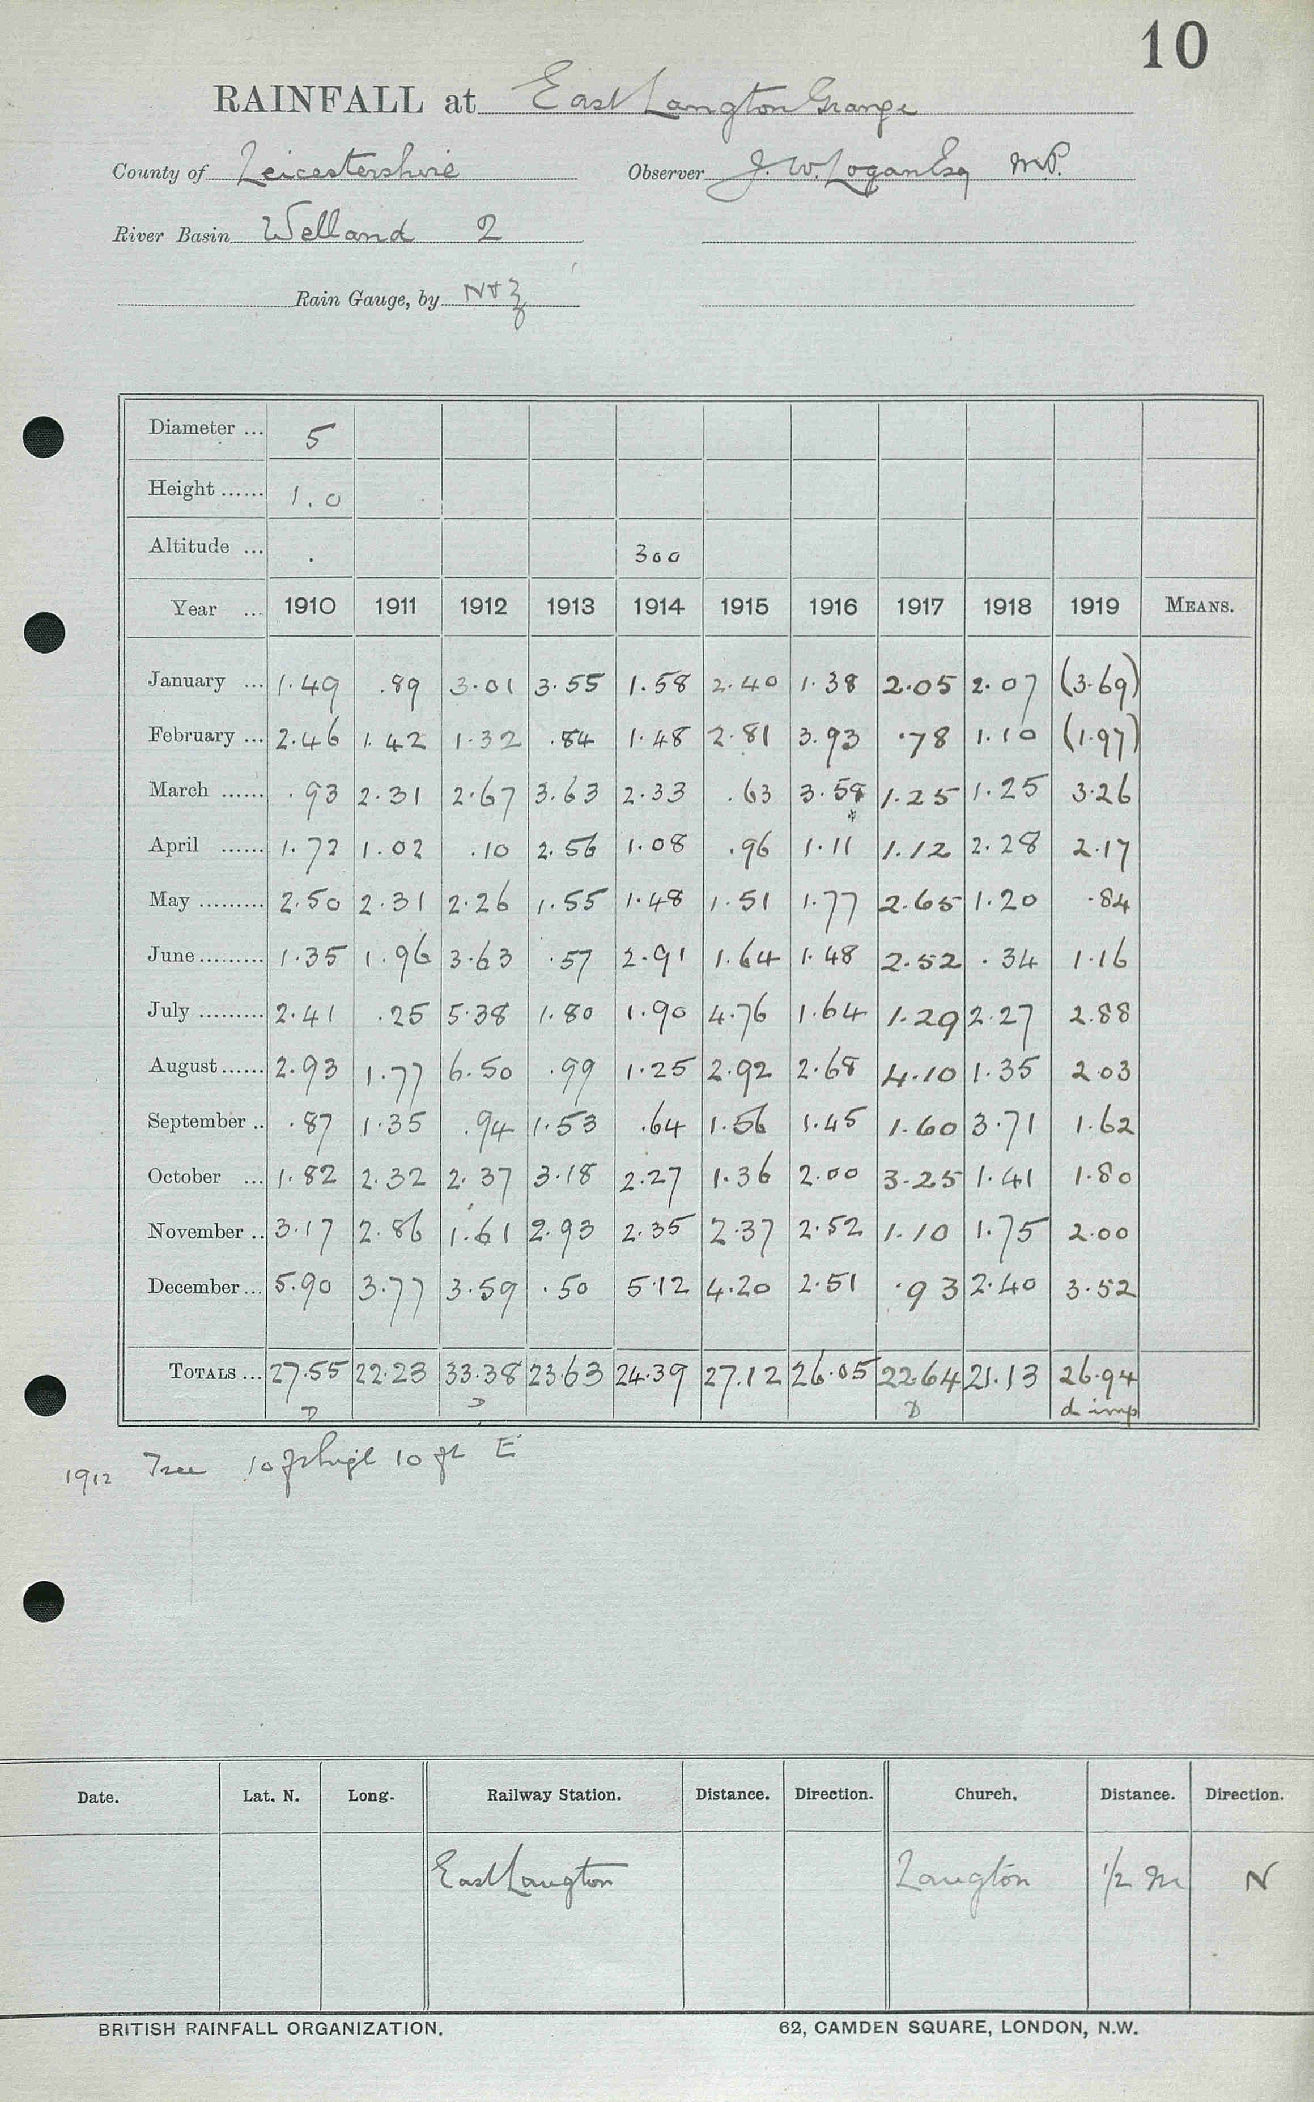 10
RAINFALL at East Langton Grange
County of Leicestershire Observer J. W. Logan Esq M.P.
River Basin Welland 2
Rain Gauge, by N & Z
Diameter ... 5
Height ...... 1.0
Altitude ... . 300
Year ... 1910 1911 1912 1913 1914 1915 1916 1917 1918 1919 MEANS.
January ... 1.49 .89 3.01 3.55 1.58 2.40 1.38 2.05 2.07 (3.69)
February ... 2.46 1.42 1.32 .84 1.48 2.81 3.93 .78 1.10 (1.97)
March ...... .93 2.31 2.67 3.63 2.33 .63 3.58 1.25 1.25 3.26
April ...... 1.72 1.02 .10 2.56 1.08 .96 1.11 1.12 2.28 2.17
May ......... 2.50 2.31 2.26 1.55 1.48 1.51 1.77 2.65 1.20 .84
June ......... 1.35 1.96 3.63 .57 2.91 1.64 1.48 2.52 .34 1.16
July ......... 2.41 .25 5.38 1.80 1.90 4.76 1.64 1.29 2.27 2.88
August ...... 2.93 1.77 6.50 .99 1.25 2.92 2.68 4.10 1.35 2.03
September .. .87 1.35 .94 1.53 .64 1.56 1.45 1.60 3.71 1.62
October ... 1.82 2.32 2.37 3.18 2.27 1.36 2.00 3.25 1.41 1.80
November .. 3.17 2.86 1.61 2.93 2.35 2.37 2.52 1.10 1.75 2.00
December ... 5.90 3.77 3.59 .50 5.12 4.20 2.51 .93 2.40 3.52
TOTALS ... 27.55 22.23 33.38 23.63 24.39 27.12 26.05 22.64 21.13 26.94
D D D d imp
1912 Tree 10 ft high 10 ft E
Date. Lat. N. Long. Railway Station. Distance. Direction. Church. Distance. Direction.
East Langton Langton 1/2 m N
BRITISH RAINFALL ORGANIZATION. 62, CAMDEN SQUARE, LONDON, N.W.